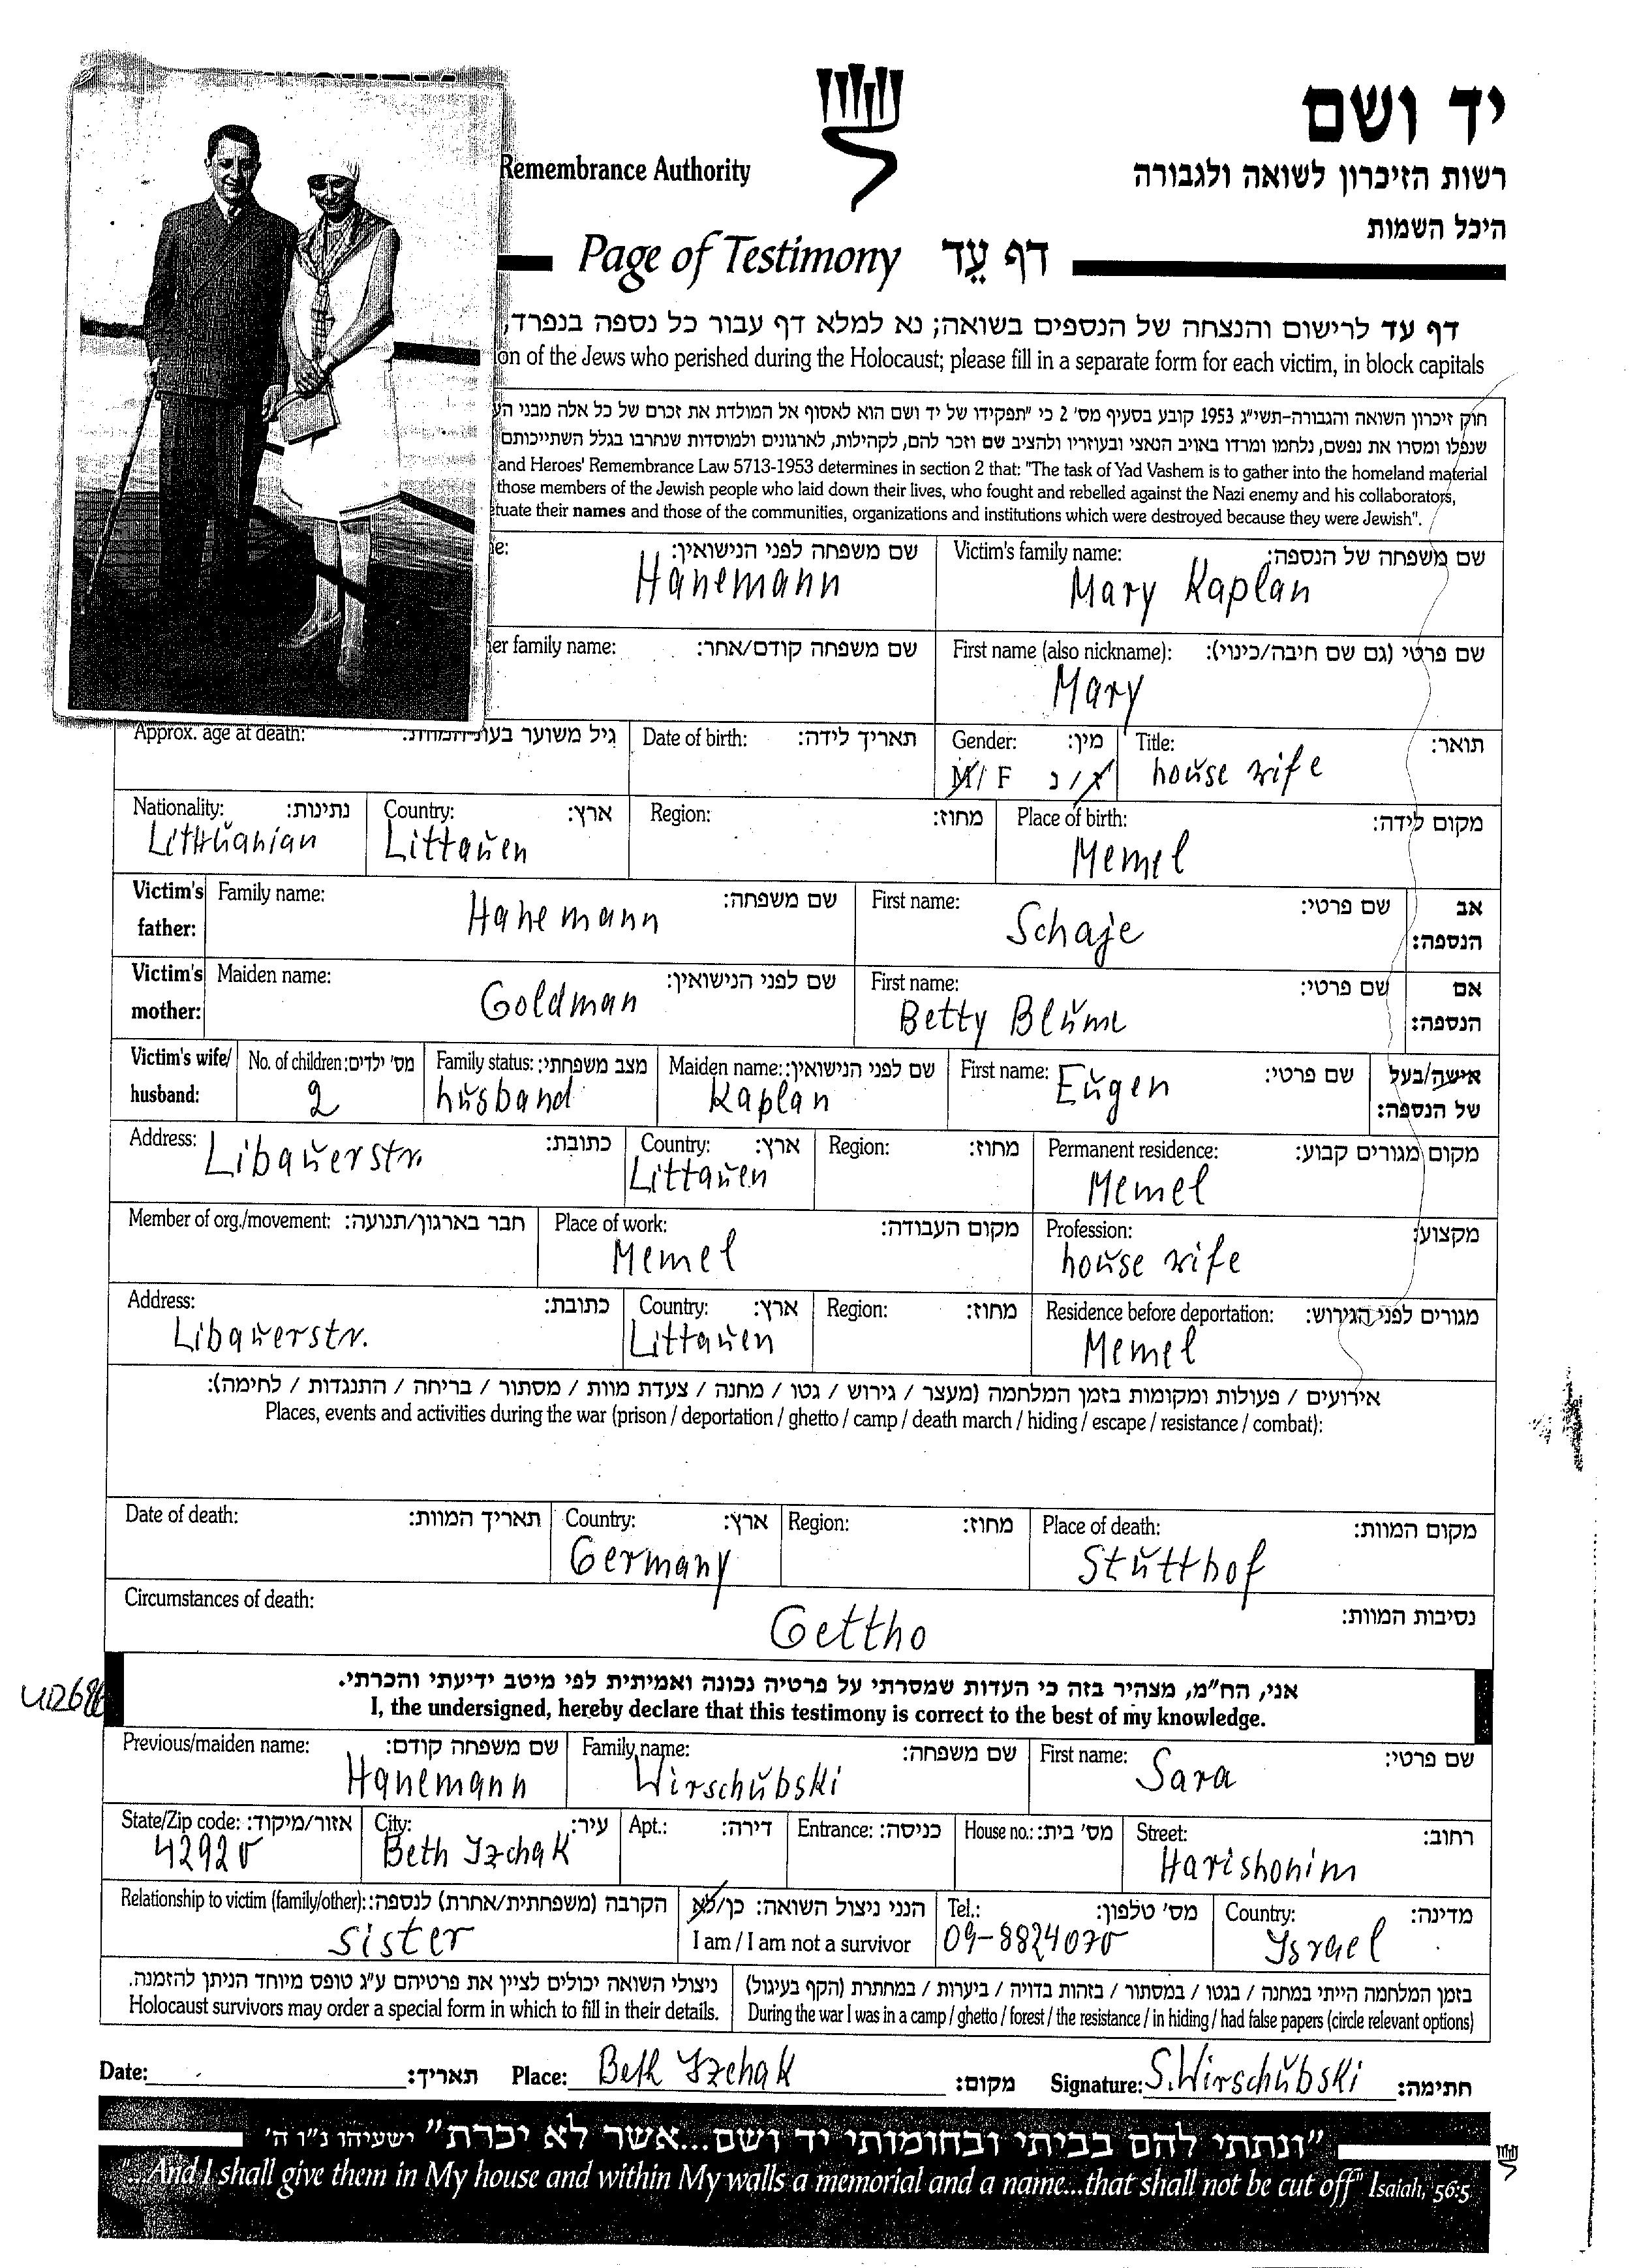 יד ושם
Remembrance Authority
רשות הזיכרון לשואה ולגבורה
היכל השמות
Page of Testimony דף עֵד
דף עד לרישום והנצחה של הנספים בשואה; נא למלא דף עבור כל נספה בנפרד,
on of the Jews who perished during the Holocaust; please fill in a separate form for each victim, in block capitals
חוק זיכרון השואה והגבורה-תשי"ג 1953 קובע בסעיף מס' 2 כי "תפקידו של יד ושם הוא לאסוף אל המולדת את זכרם של כל אלה מבני
שנפלו ומסרו את נפשם, נלחמו ומרדו באויב הנאצי ובעוזריו ולהציב שם וזכר להם, לקהילות, לארגונים ולמוסדות שנחרבו בגלל השתייכותם
and Heroes' Remembrance Law 5713-1953 determines in section 2 that: "The task of Yad Vashem is to gather into the homeland material
those members of the Jewish people who laid down their lives, who fought and rebelled against the Nazi enemy and his collaborators,
etuate their names and those of the communities, organizations and institutions which were destroyed because they were Jewish".
שם משפחה לפני הנישואין: Victim's family name: שם משפחה של הנספה:
Hanemann Mary Kaplan
er family name: שם משפחה קודם/אחר: First name (also nickname): שם פרטי (גם שם חיבה/כינוי):
Mary
Approx. age at death: גיל משוער בעת המוות: Date of birth: תאריך לידה: Gender: מין: Title: תואר:
M/ F ז/נ house wife
Nationality: נתינות: Country: ארץ: Region: מחוז: Place of birth: מקום לידה:
Lithuanian Littauen Memel
Victim's father: Family name: שם משפחה: First name: שם פרטי: אב הנספה:
Hanemann Schaje
Victim's mother: Maiden name: שם לפני הנישואין: First name: שם פרטי: אם הנספה:
Goldman Betty Blume
Victim's wife/ husband: No. of children: מס' ילדים: Family status: מצב משפחתי: Maiden name: שם לפני הנישואין: First name: שם פרטי: אישה/בעל של הנספה:
2 husband Kaplan Eugen
Address: כתובת: Country: ארץ: Region: מחוז: Permanent residence: מקום מגורים קבוע:
Libauerstr. Littauen Memel
Member of org./movement: חבר בארגון/תנועה: Place of work: מקום העבודה: Profession: מקצוע:
Memel house wife
Address: כתובת: Country: ארץ: Region: מחוז: Residence before deportation: מגורים לפני הגירוש:
Libauerstr. Littauen Memel
אירועים / פעולות ומקומות בזמן המלחמה (מעצר / גירוש / גטו / מחנה / צעדת מוות / מסתור / בריחה / התנגדות / לחימה):
Places, events and activities during the war (prison / deportation / ghetto / camp / death march / hiding / escape / resistance / combat):
Date of death: תאריך המוות: Country: ארץ: Region: מחוז: Place of death: מקום המוות:
Germany Stutthof
Circumstances of death: נסיבות המוות:
Gettho
אני, הח"מ, מצהיר בזה כי העדות שמסרתי על פרטיה נכונה ואמיתית לפי מיטב ידיעתי והכרתי.
I, the undersigned, hereby declare that this testimony is correct to the best of my knowledge.
Previous/maiden name: שם משפחה קודם: Family name: שם משפחה: First name: שם פרטי:
Hanemann Wirschubski Sara
State/Zip code: אזור/מיקוד: City: עיר: Apt.: דירה: Entrance: כניסה: House no.: מס' בית: Street: רחוב:
42920 Beth Izchak Harishonim
Relationship to victim (family/other): הקרבה (משפחתית/אחרת) לנספה: הנני ניצול השואה: כן/לא Tel.: מס' טלפון: Country: מדינה:
sister I am / I am not a survivor 09-8824070 Israel
ניצולי השואה יכולים לציין את פרטיהם ע"ג טופס מיוחד הניתן להזמנה. בזמן המלחמה הייתי במחנה / בגטו / במסתור / בזהות בדויה / ביערות / במחתרת (הקף בעיגול)
Holocaust survivors may order a special form in which to fill in their details. During the war I was in a camp / ghetto / forest / the resistance / in hiding / had false papers (circle relevant options)
Date: תאריך: Place: Beth Izchak מקום: Signature: S. Wirschubski חתימה:
"ונתתי להם בביתי ובחומותי יד ושם...אשר לא יכרת" ישעיהו נ"ו ה'
"...And I shall give them in My house and within My walls a memorial and a name...that shall not be cut off" Isaiah, 56:5